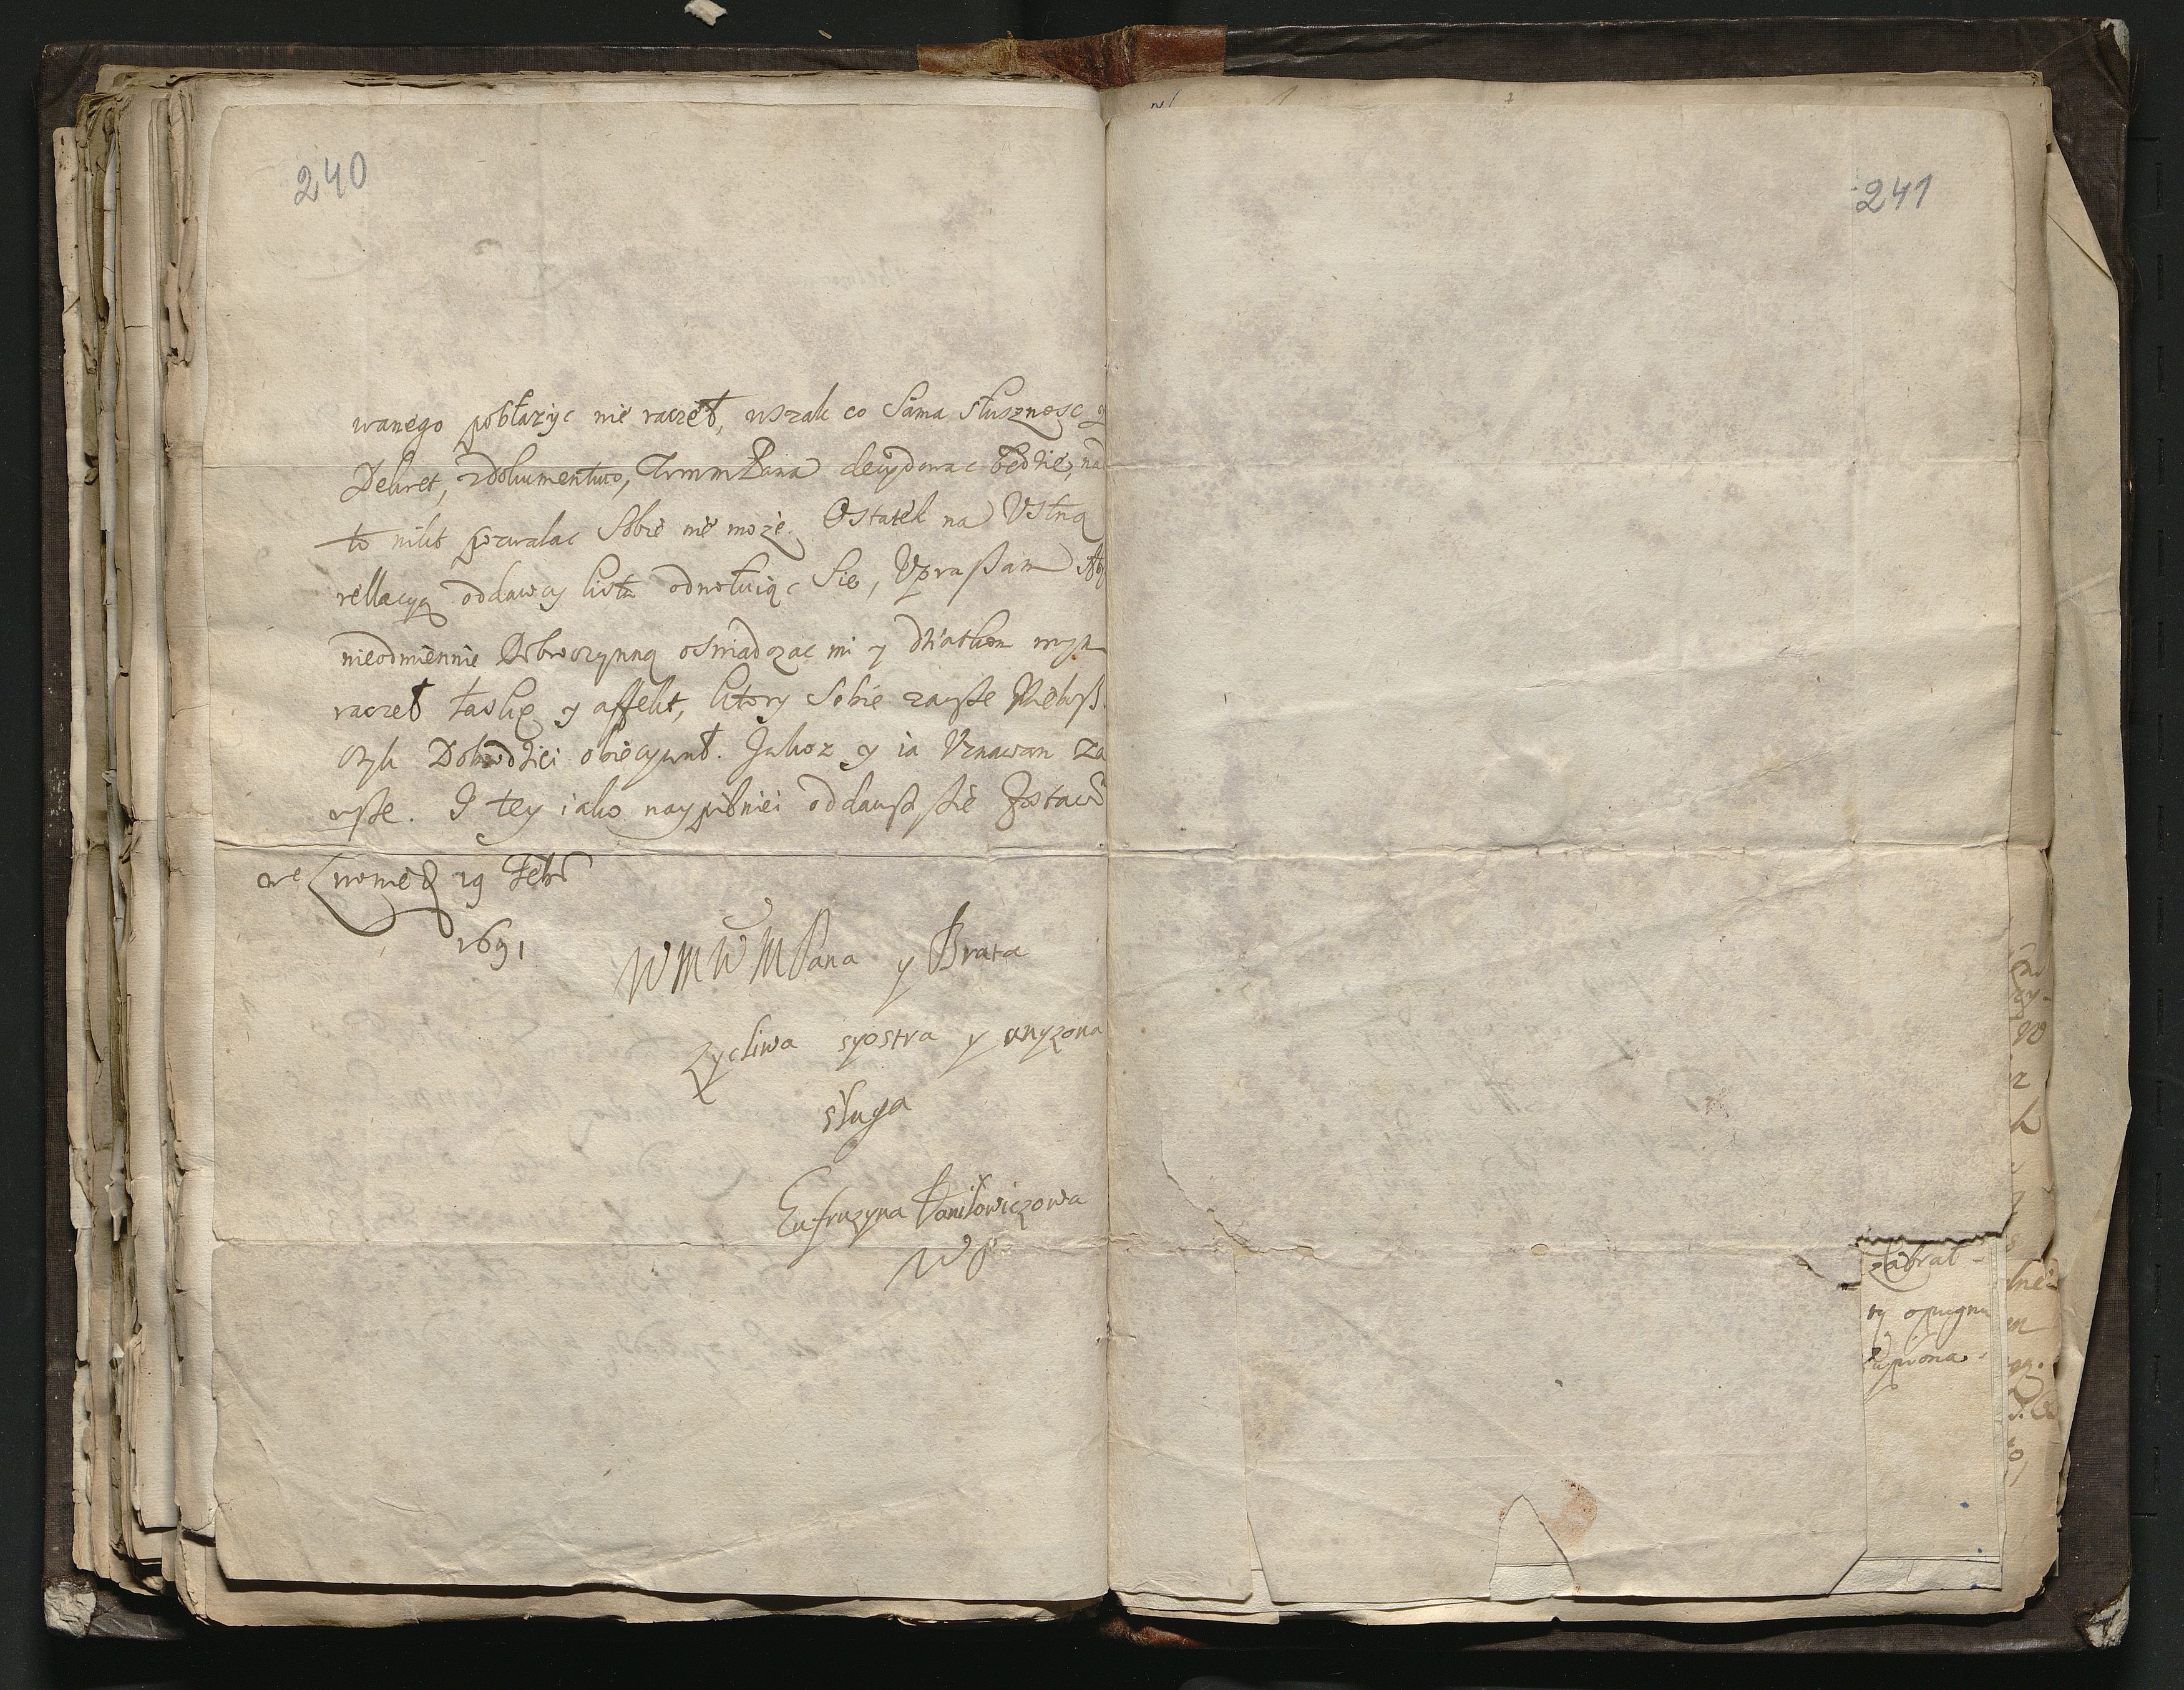 240
wanego pobłażyc nie raczeł, wszak co Sama słusznosc y
Dekret, zdokumentuo, WmmPana decydowac będzie, na
to nikt pozwalac Sobie nie może. Ostatek na Ustną
rellacyą oddawcy listu odwołuiąc Sie, Upraszam Aby
nieodmiennie Dobroczynną oswiadczac mi y dziatkom moym
raczeł łaskę y affekt, ktory Sobie zawsze
Dobrodziei obiecywał. Jakoz y ia Uznawam za
wsze. I tey iako naypilniei oddawszy sie Zostaię
we Lwowie D 19 Febr
1691
WMWMPana y Brata
Zycliwa syostra y unyzona
sługa
Eufruzyna Daniłowiczowa
WR
241
zabrał
ty opugnu
Zupiona